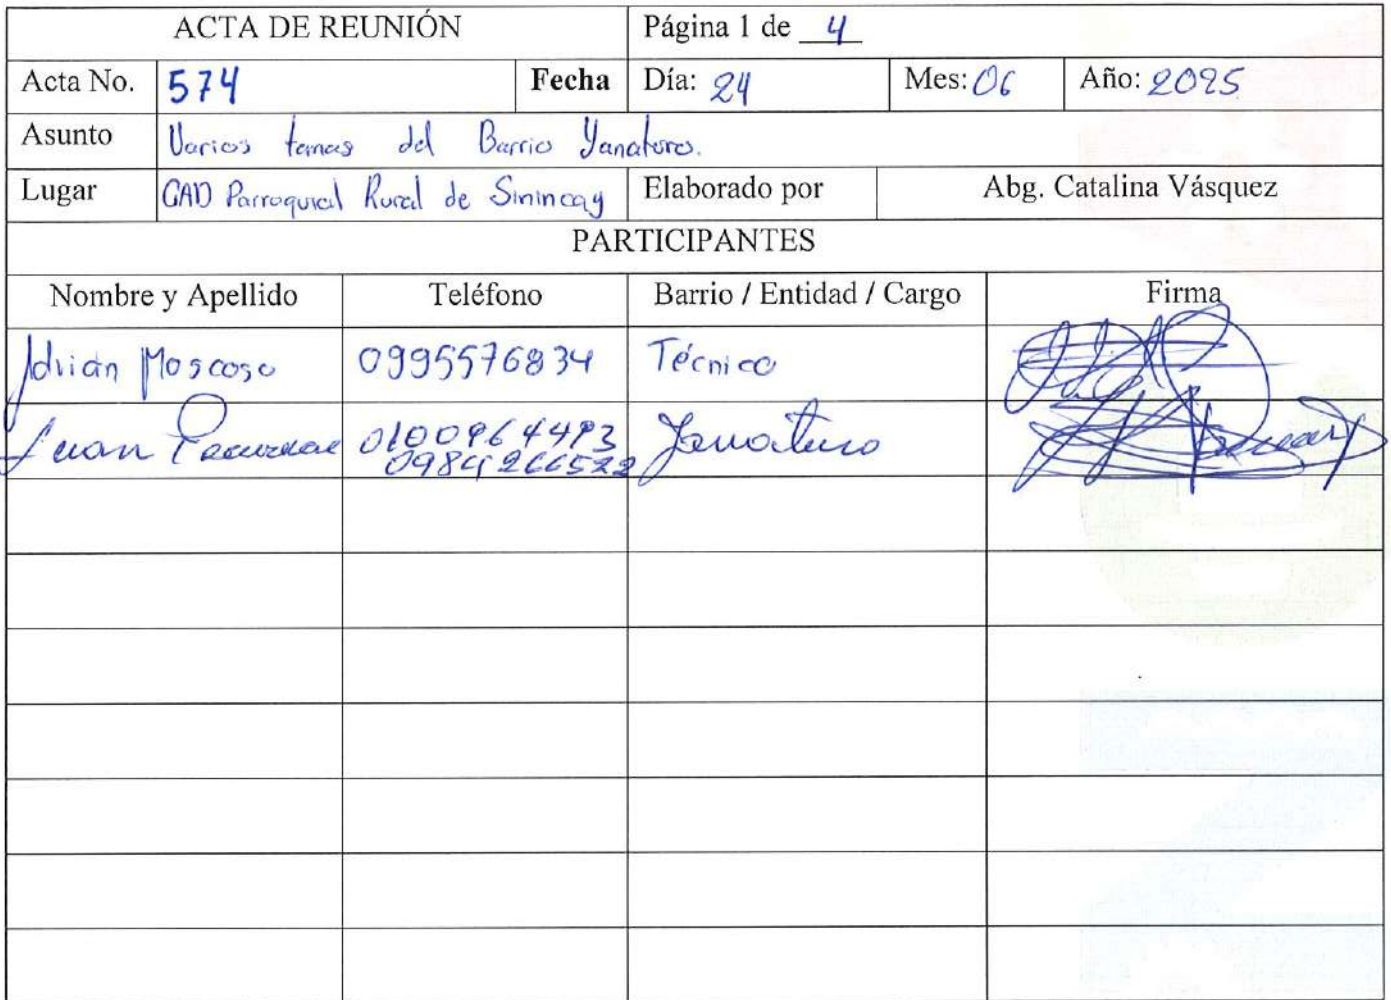 ACTA DE REUNIÓN Página 1 de 4
Acta No. 574 Fecha Día: 24 Mes: 06 Año: 2025
Asunto Varios temas del Barrio Yanaturo.
Lugar GAD Parroquial Rural de Sinincay Elaborado por Abg. Catalina Vásquez
PARTICIPANTES
Nombre y Apellido Teléfono Barrio / Entidad / Cargo Firma
Adrián Moscoso 0995576834 Técnico
Juan 0100964493 Yanaturo
0984266522